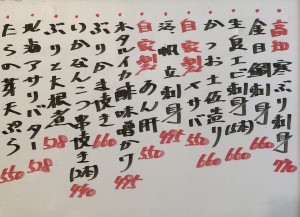 高知 寒ぶり刺身 770
金目鯛刺身 660
生良エビ刺身(5本) 660
かつお土佐造り 660
自家製 〆サバ 550
活帆立刺身 495
自家製 あん肝 550
ホタルイカ酢味噌がけ 495
ぶりかま焼き 660
いかなんこつ串焼き(2本) 440
ぶりと大根煮 528
北海アサリバター 528
たらの芽天ぷら 550